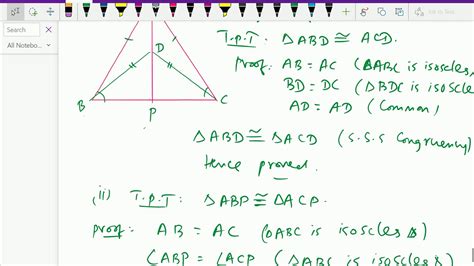 Search
All Notebo...
T.P.T: △ABD ≅ ACD.
Proof: AB = AC (△ABC is isoscles
BD = DC (△BDC is isoscle
AD = AD (Common)
D
B
C
P
△ABD ≅ △ACD (S.S.S Congruency)
Hence proved.
(ii) T.P.T: △ABP ≅ △ACP.
Proof: AB = AC (△ABC is isoscles △)
∠ABP = ∠ACP (△ABC is isoscles △)